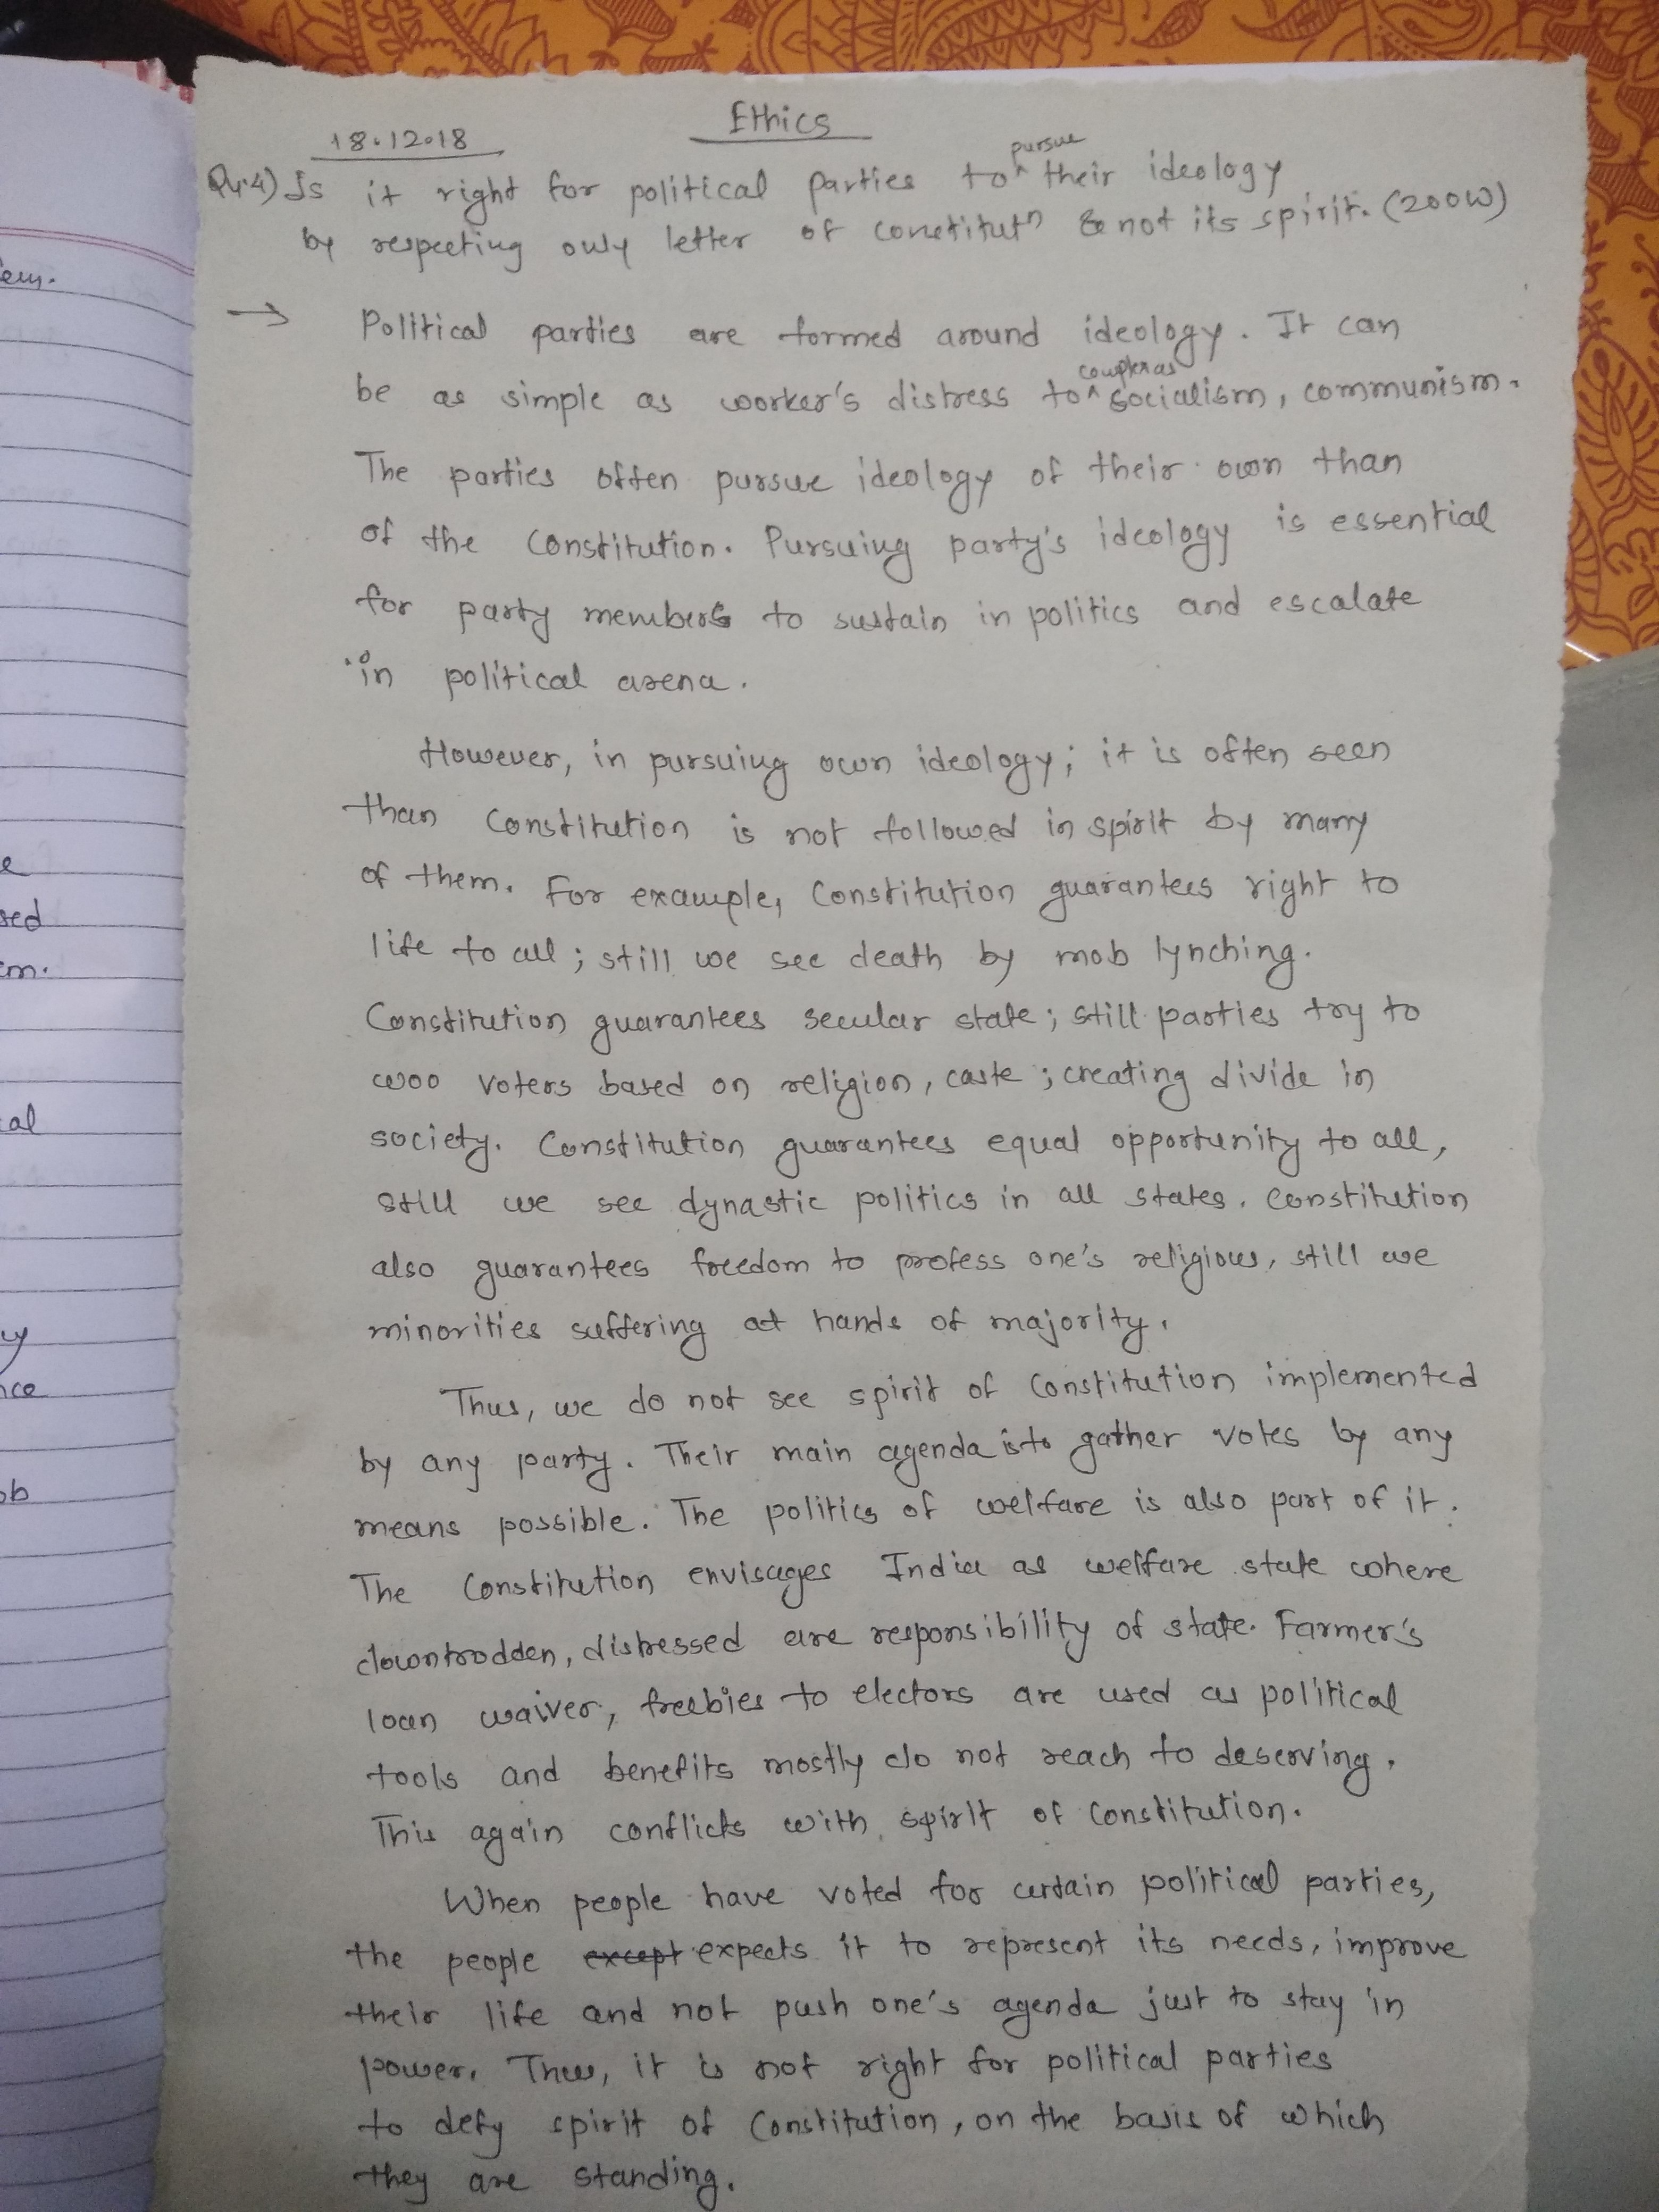 Ethics
18.12.18
Qu.4) Is it right for political parties to pursue their ideology
by respecting only letter of constitutn & not its spirit. (200W)
→ Political parties are formed around ideology. It can
be as simple as worker's distress to complex as socialism, communism.
The parties often pursue ideology of their own than
of the Constitution. Pursuing party's ideology is essential
for party members to sustain in politics and escalate
in political arena.
However, in pursuing own ideology; it is often seen
than Constitution is not followed in spirit by many
of them. For example, Constitution guarantees right to
life to all; still we see death by mob lynching.
Constitution guarantees secular state; still parties try to
woo voters based on religion, caste; creating divide in
society. Constitution guarantees equal opportunity to all,
still we see dynastic politics in all states. Constitution
also guarantees freedom to profess one's religious, still we
minorities suffering at hands of majority.
Thus, we do not see spirit of Constitution implemented
by any party. Their main agenda is to gather votes by any
means possible. The politics of welfare is also part of it.
The Constitution envisages India as welfare state where
downtrodden, distressed are responsibility of state. Farmer's
loan waiver, freebies to electors are used as political
tools and benefits mostly do not reach to deserving.
This again conflicts with spirit of Constitution.
When people have voted for certain political parties,
the people except expects it to represent its needs, improve
their life and not push one's agenda just to stay in
power. Thus, it is not right for political parties
to defy spirit of Constitution, on the basis of which
they are standing.